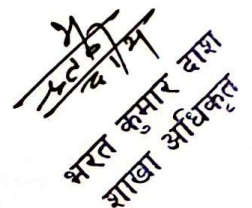 भरत कुमार दाश
शाखा अधिकृत